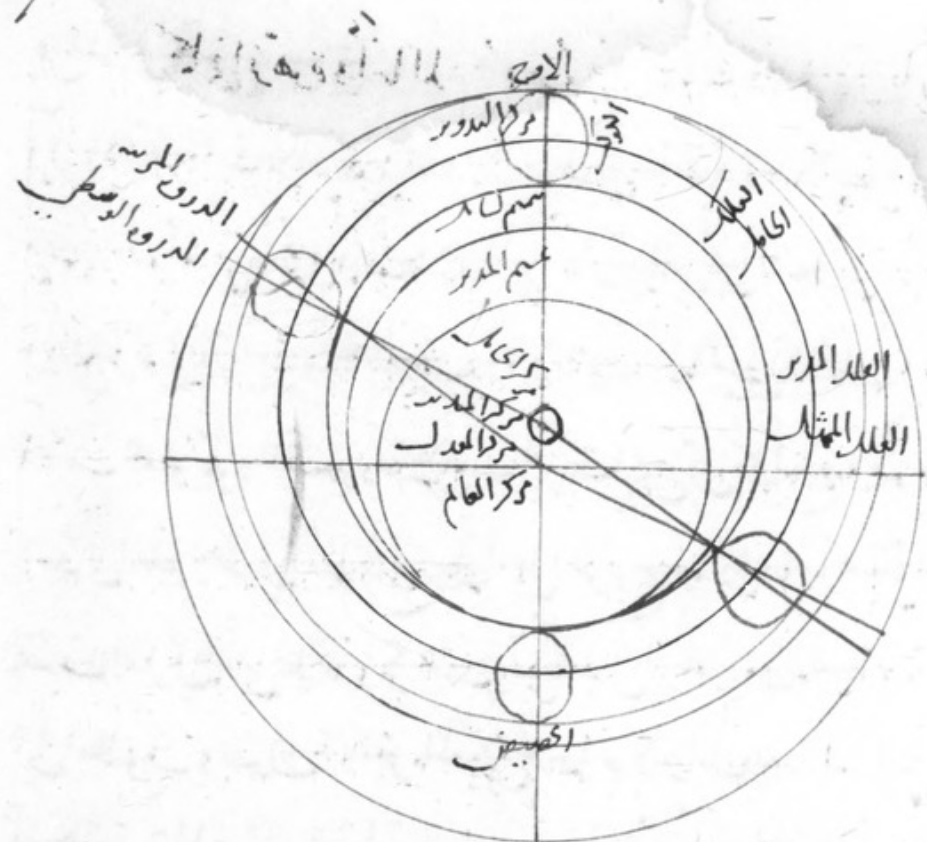 الاوج
مركز التدوير
التدوير
الذروة المرئيه
الذروة الوسطى
متمم الحامل
الفلك
الحامل
متمم المدير
مركز الحامل
مركز المدير
مركز المعدل
مركز العالم
الفلك المدير
الفلك الممثل
الحضيض